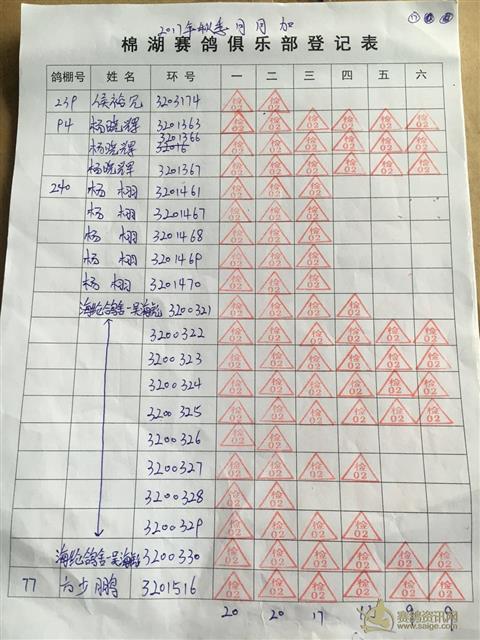 2017年秋季月月加
⑰
棉湖赛鸽俱乐部登记表
鸽棚号 姓名 环号 一 二 三 四 五 六
239 侯裕冗 3203174 检02 检02
94 杨晓辉 3201363 检02 检02 检02 检02 检02 检02
杨晓辉 3201366 检02 检02 检02 检02 检02 检02
杨晓辉 3201367 检02 检02 检02 检02 检02 检02
240 杨栩 3201461 检02 检02 检02
杨栩 3201467 检02 检02 检02
杨栩 3201468 检02 检02 检02
杨栩 3201469 检02 检02 检02
杨栩 3201470 检02 检02 检02
海纶鸽舍-吴海纶 3200321 检02 检02 检02 检02
3200322 检02 检02 检02 检02 检02 检02
3200323 检02 检02 检02 检02 检02 检02
3200324 检02 检02 检02 检02 检02 检02
3200325 检02 检02 检02 检02 检02 检02
3200326 检02 检02
3200327 检02 检02 检02 检02
3200328 检02 检02
3200329 检02 检02 检02 检02
海纶鸽舍-吴海纶 3200330 检02 检02 检02 检02 检02 检02
77 方少鹏 3201516 检02 检02 检02 检02 检02 检02
20 20 17 9 9
赛鸽资讯网
www.saige.com